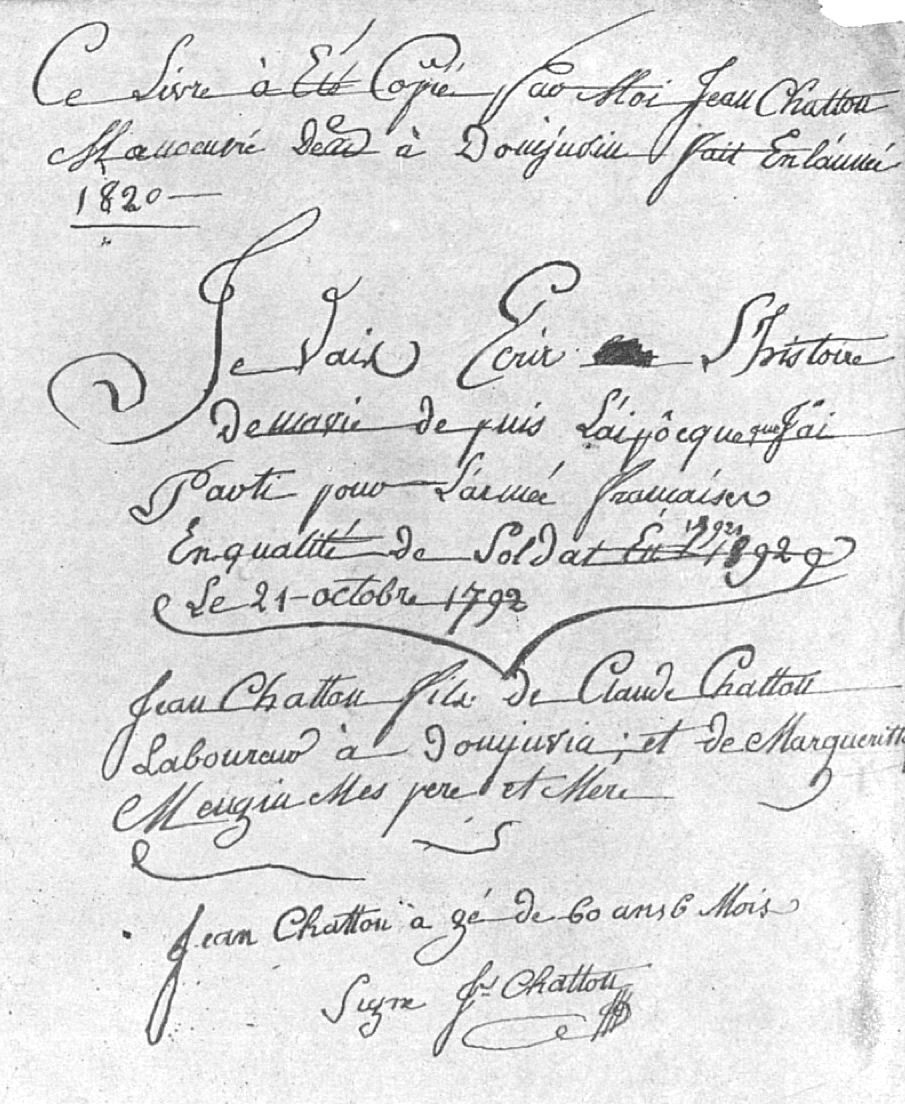 Ce Livre à Eté Copié par Moi Jean Chatton
Manoeuvré à Domjuvin fait En lánnéé
1820
Je Vais Ecrir L'histoire
de mavie de puis L'aipôcque que J'ai
Parti pour L'armée framaises
En qualité de Soldat En 1792 1892
Le 21 octobre 1792
Jean Chatton fils de Claude Chatton
Laboureur à Domjuvin; et de Margueritte
Mengin Mes pere et Mere
Jean Chatton à gé de 60 ans 6 Mois
Signe Jn Chatton